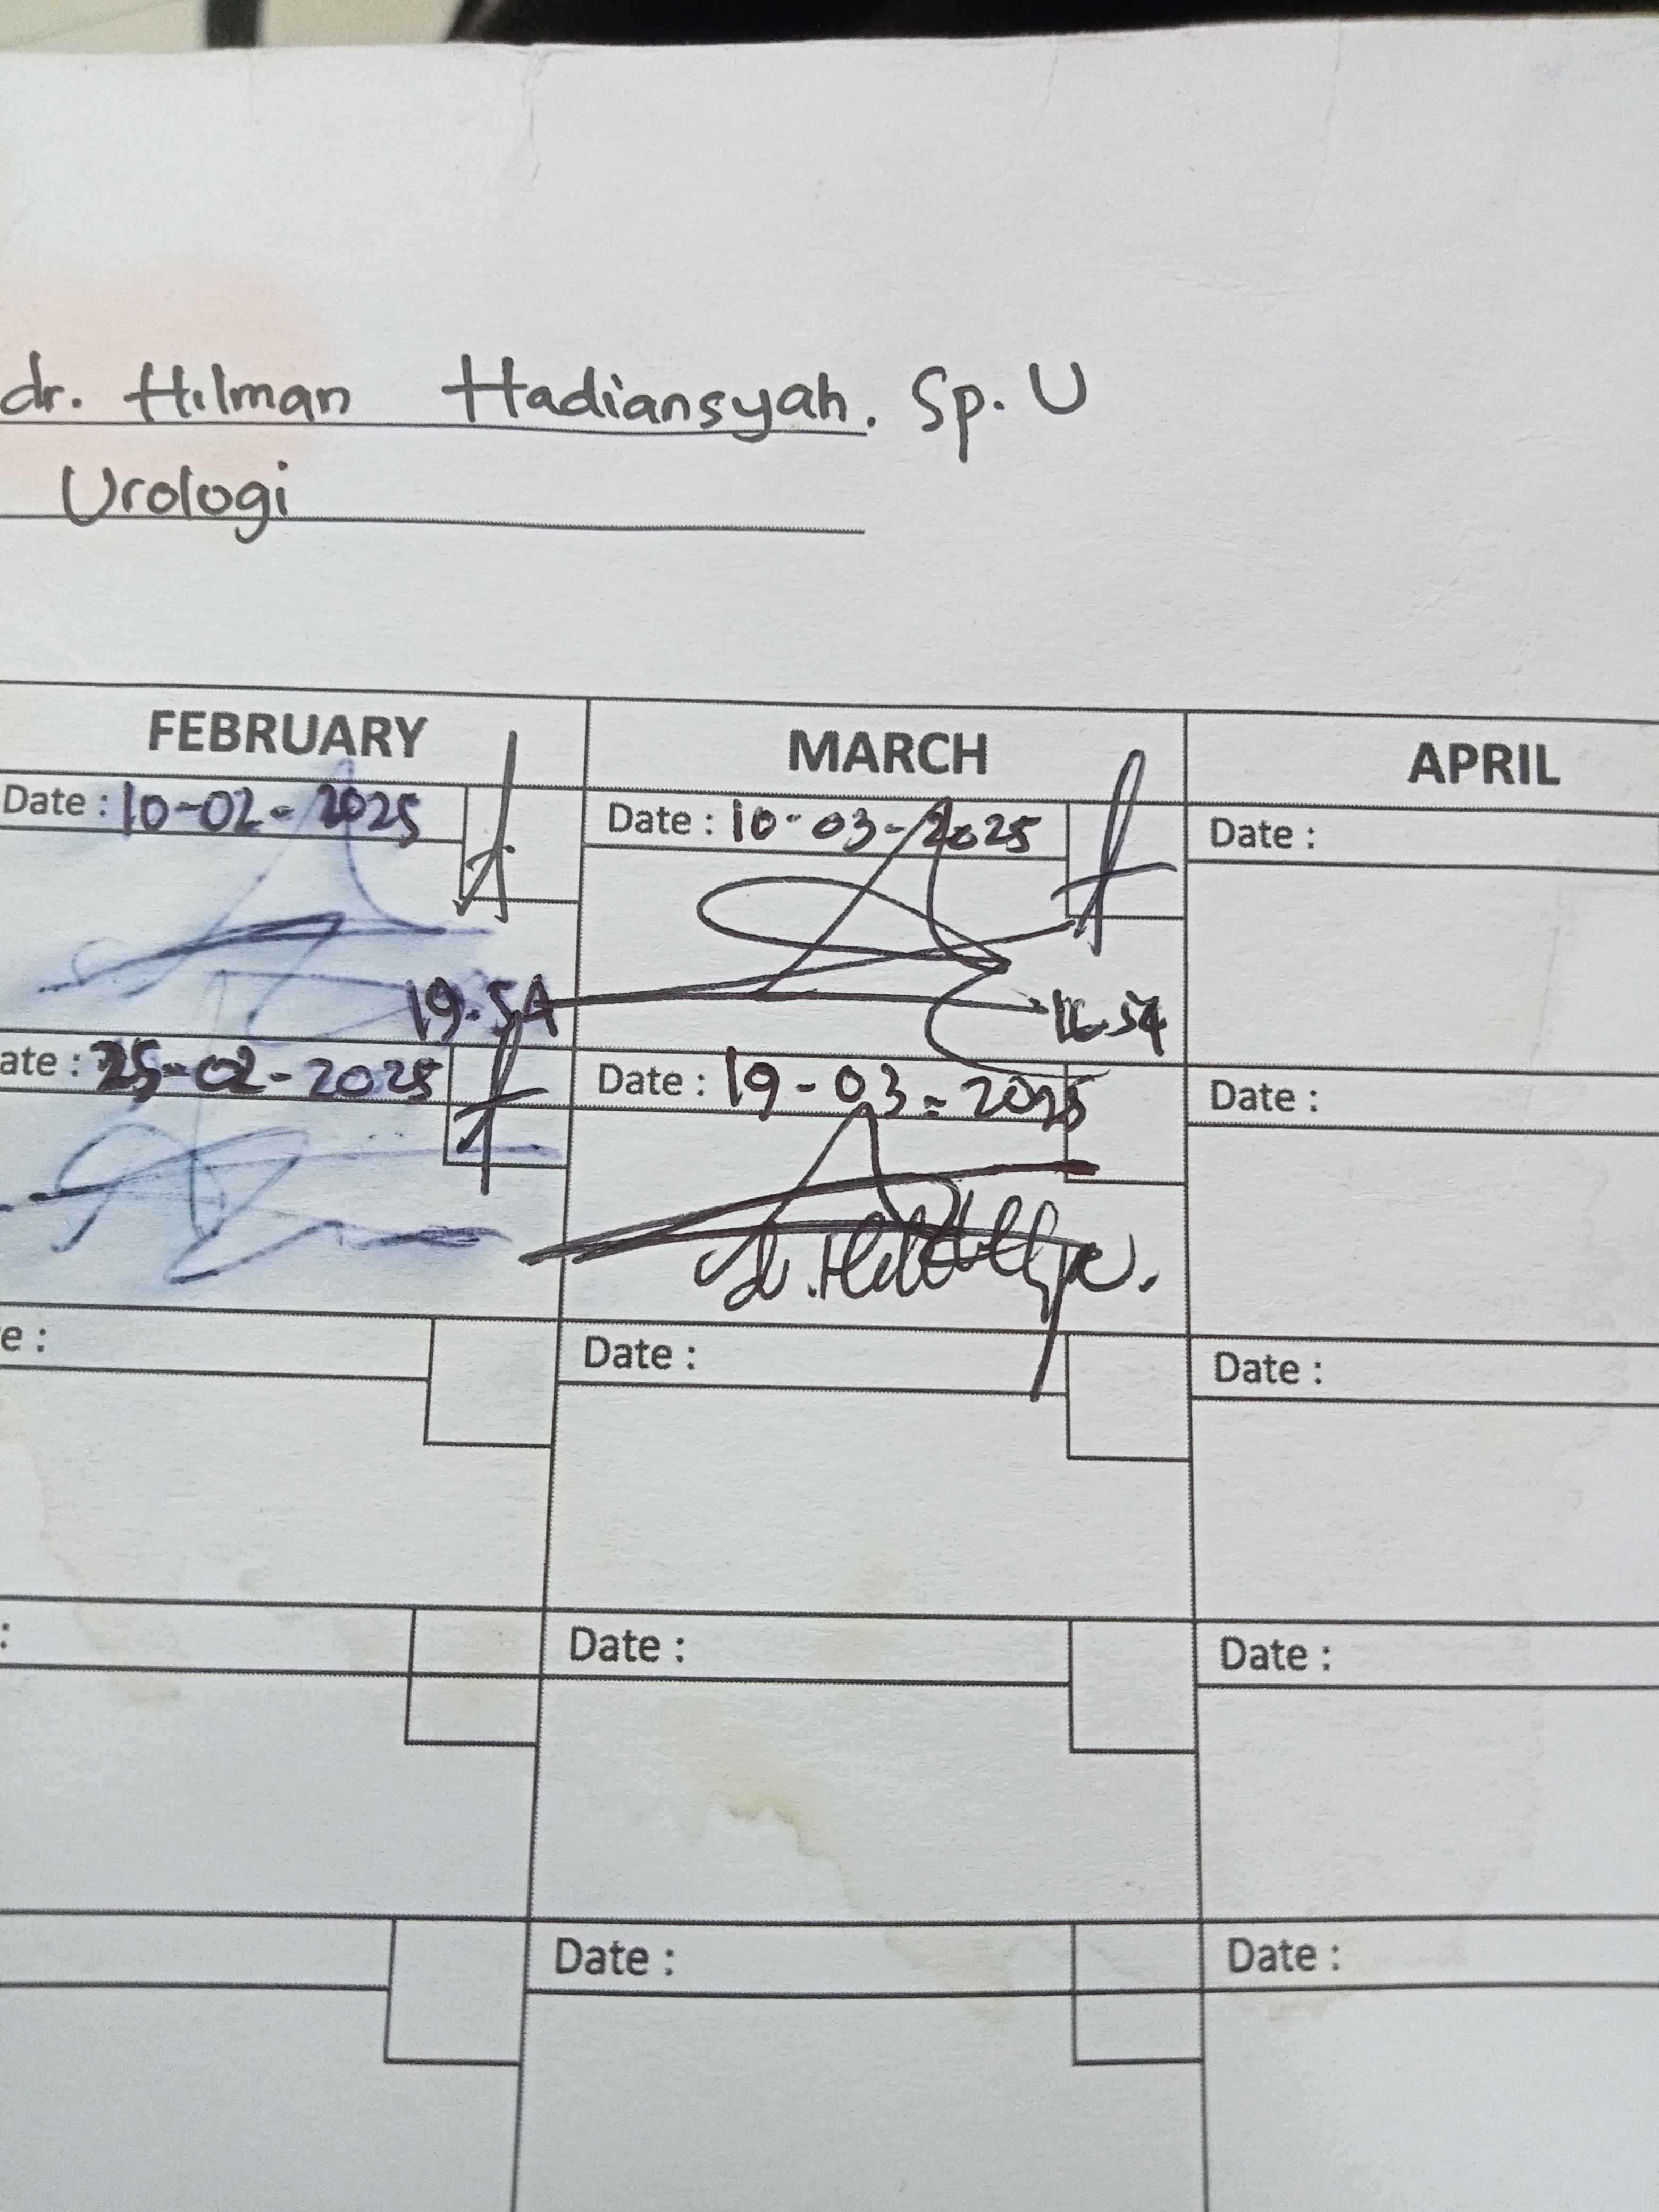 dr. Hilman Hadiansyah. Sp. U
Urologi
FEBRUARY MARCH APRIL
Date : 10-02-2025 Date : 10-03-2025 Date :
19.54
ate : 25-02-2025 Date : 19-03-2025 Date :
e : Date : Date :
: Date : Date :
Date : Date :